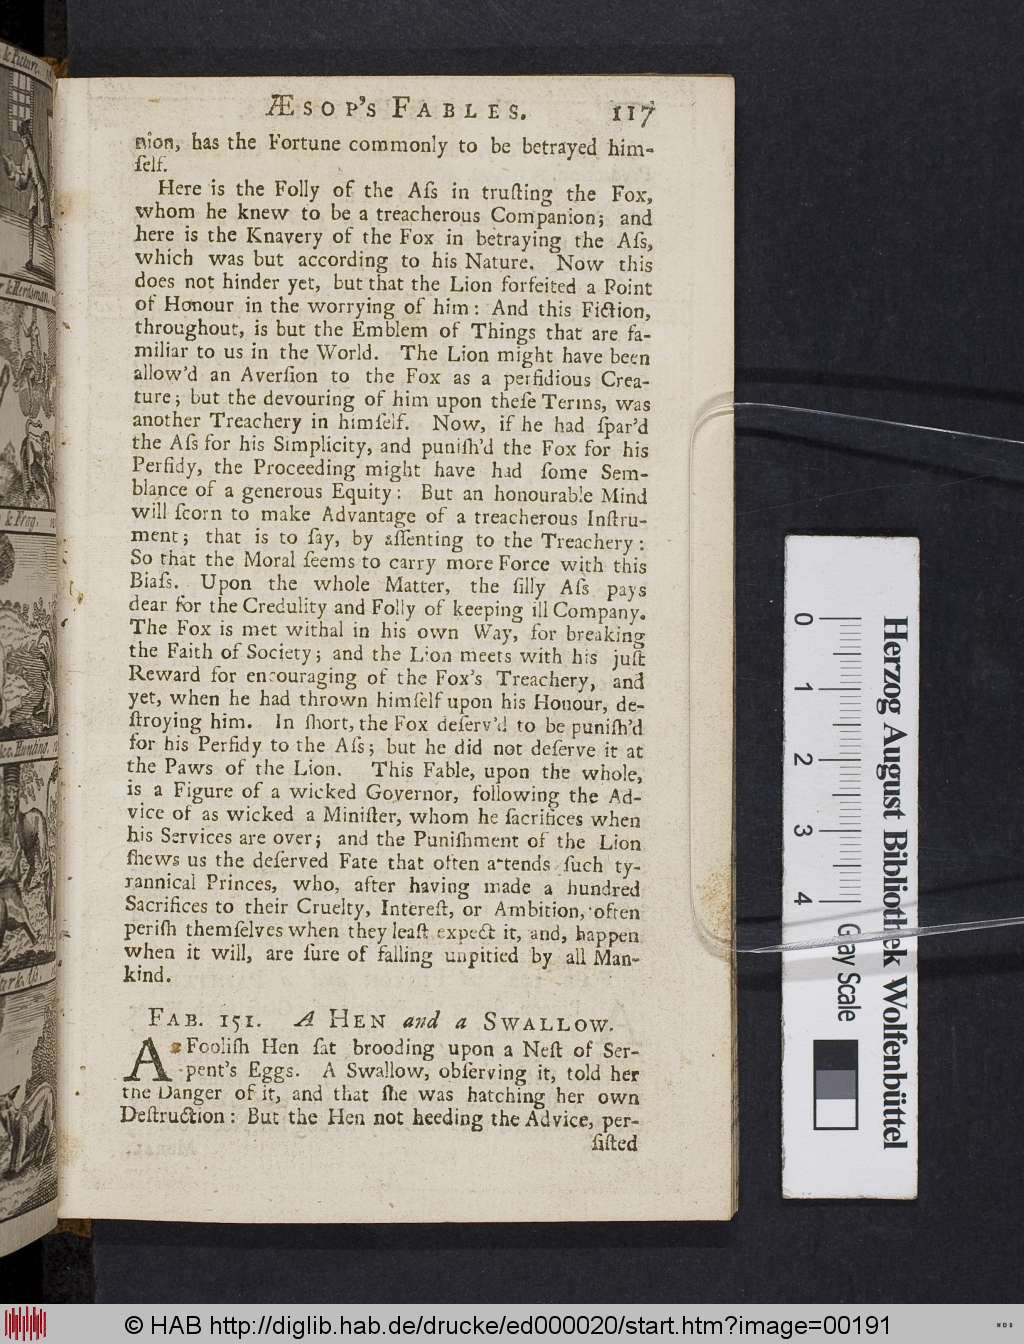 ÆSOP'S FABLES. 117
nion, has the Fortune commonly to be betrayed him-
ſelf.
Here is the Folly of the Aſs in truſting the Fox,
whom he knew to be a treacherous Companion; and
here is the Knavery of the Fox in betraying the Aſs,
which was but according to his Nature. Now this
does not hinder yet, but that the Lion forfeited a Point
of Honour in the worrying of him: And this Fiction,
throughout, is but the Emblem of Things that are fa-
miliar to us in the World. The Lion might have been
allow'd an Averſion to the Fox as a perfidious Crea-
ture; but the devouring of him upon theſe Terms, was
another Treachery in himſelf. Now, if he had ſpar'd
the Aſs for his Simplicity, and puniſh'd the Fox for his
Perfidy, the Proceeding might have had ſome Sem-
blance of a generous Equity: But an honourable Mind
will ſcorn to make Advantage of a treacherous Inſtru-
ment; that is to ſay, by aſſenting to the Treachery:
So that the Moral ſeems to carry more Force with this
Biaſs. Upon the whole Matter, the ſilly Aſs pays
dear for the Credulity and Folly of keeping ill Company.
The Fox is met withal in his own Way, for breaking
the Faith of Society; and the Lion meets with his juſt
Reward for encouraging of the Fox's Treachery, and
yet, when he had thrown himſelf upon his Honour, de-
ſtroying him. In ſhort, the Fox deſerv'd to be puniſh'd
for his Perfidy to the Aſs; but he did not deſerve it at
the Paws of the Lion. This Fable, upon the whole,
is a Figure of a wicked Governor, following the Ad-
vice of as wicked a Miniſter, whom he ſacrifices when
his Services are over; and the Puniſhment of the Lion
ſhews us the deſerved Fate that often attends ſuch ty-
rannical Princes, who, after having made a hundred
Sacrifices to their Cruelty, Intereſt, or Ambition, often
periſh themſelves when they leaſt expect it, and, happen
when it will, are ſure of falling unpitied by all Man-
kind.
FAB. 151. A HEN and a SWALLOW.
A Fooliſh Hen ſat brooding upon a Neſt of Ser-
pent's Eggs. A Swallow, obſerving it, told her
the Danger of it, and that ſhe was hatching her own
Deſtruction: But the Hen not heeding the Advice, per-
ſiſted
0 1 2 3 4
Gray Scale
Herzog August Bibliothek Wolfenbüttel
© HAB http://diglib.hab.de/drucke/ed000020/start.htm?image=00191